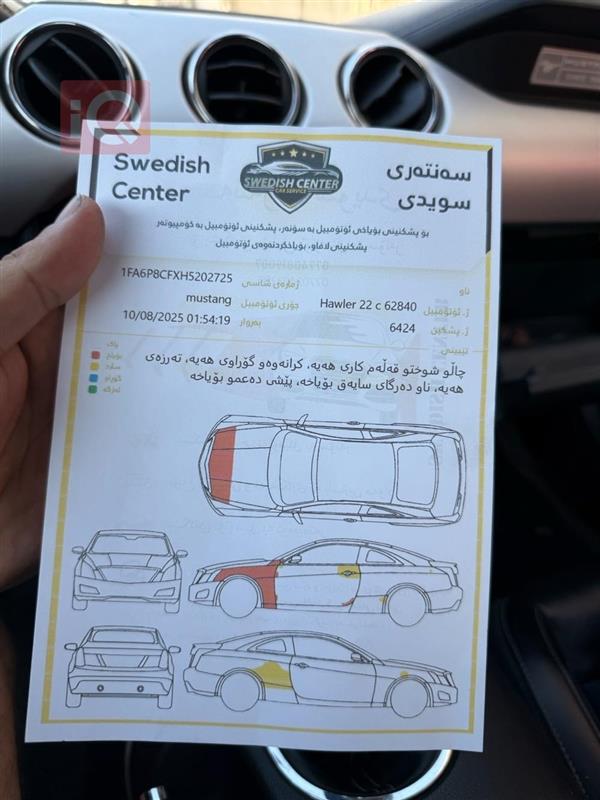 iQ
Swedish
Center
SWEDISH CENTER
CAR SERVICE
سەنتەری
سویدی
بۆ پشکنینی بۆیاخی ئۆتۆمبیل بە سۆنەر، پشکنینی ئۆتۆمبیل بە کۆمپیوتەر
پشکنینی لافاو، بۆیاخکردنەوەی ئۆتۆمبیل
ناو
1FA6P8CFXH5202725 ژمارەی شاسی
Hawler 22 c 62840 ژ. ئۆتۆمبێل
mustang جۆری ئۆتۆمبێل
6424 ژ. پشکنین
10/08/2025 01:54:19 بەروار
تێبینی
چاڵو شوختو قەڵەم کاری هەیە، کرانەوەو گۆراوی هەیە، تەرزەی
هەیە، ناو دەرگای سایەق بۆیاخە، پێشی دەعمو بۆیاخە
پاک
بۆیاخ